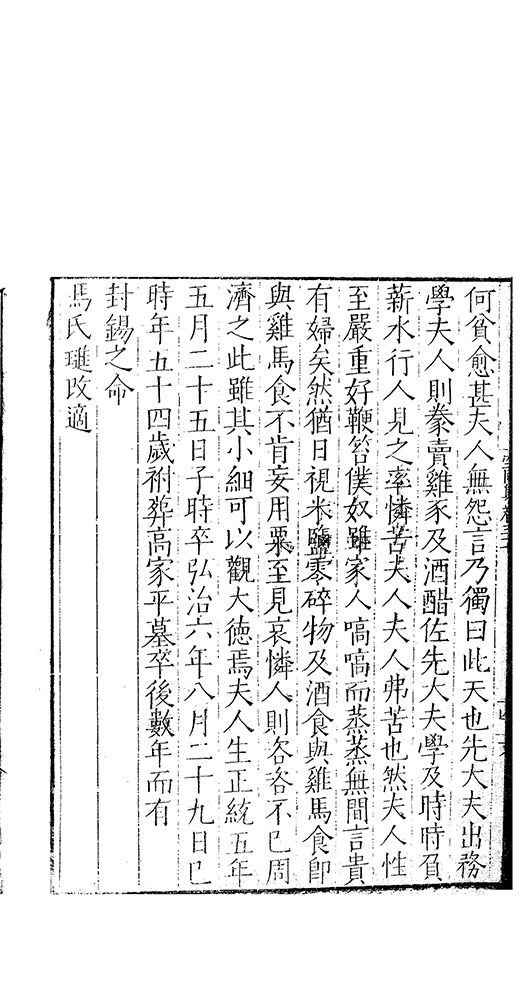 何貧愈甚夫人無怨言乃獨曰此天也先大夫出務
學夫人則豢賣雞豕及酒醋佐先大夫學及時時負
薪水行人見之率憐苦夫人夫人弗苦也然夫人性
至嚴重好鞭笞僕奴雖家人嗃嗃而蒸蒸無間言貴
有婦矣然猶日視米鹽零碎物及酒食與雞馬食即
與雞馬食不肯妄用粟至見哀憐人則咨咨不已周
濟之此雖其小細可以觀大德焉夫人生正統五年
五月二十五日子時卒弘治六年八月二十九日巳
時年五十四歲祔葬高家平墓卒後數年而有
封錫之命
馬氏璡改適